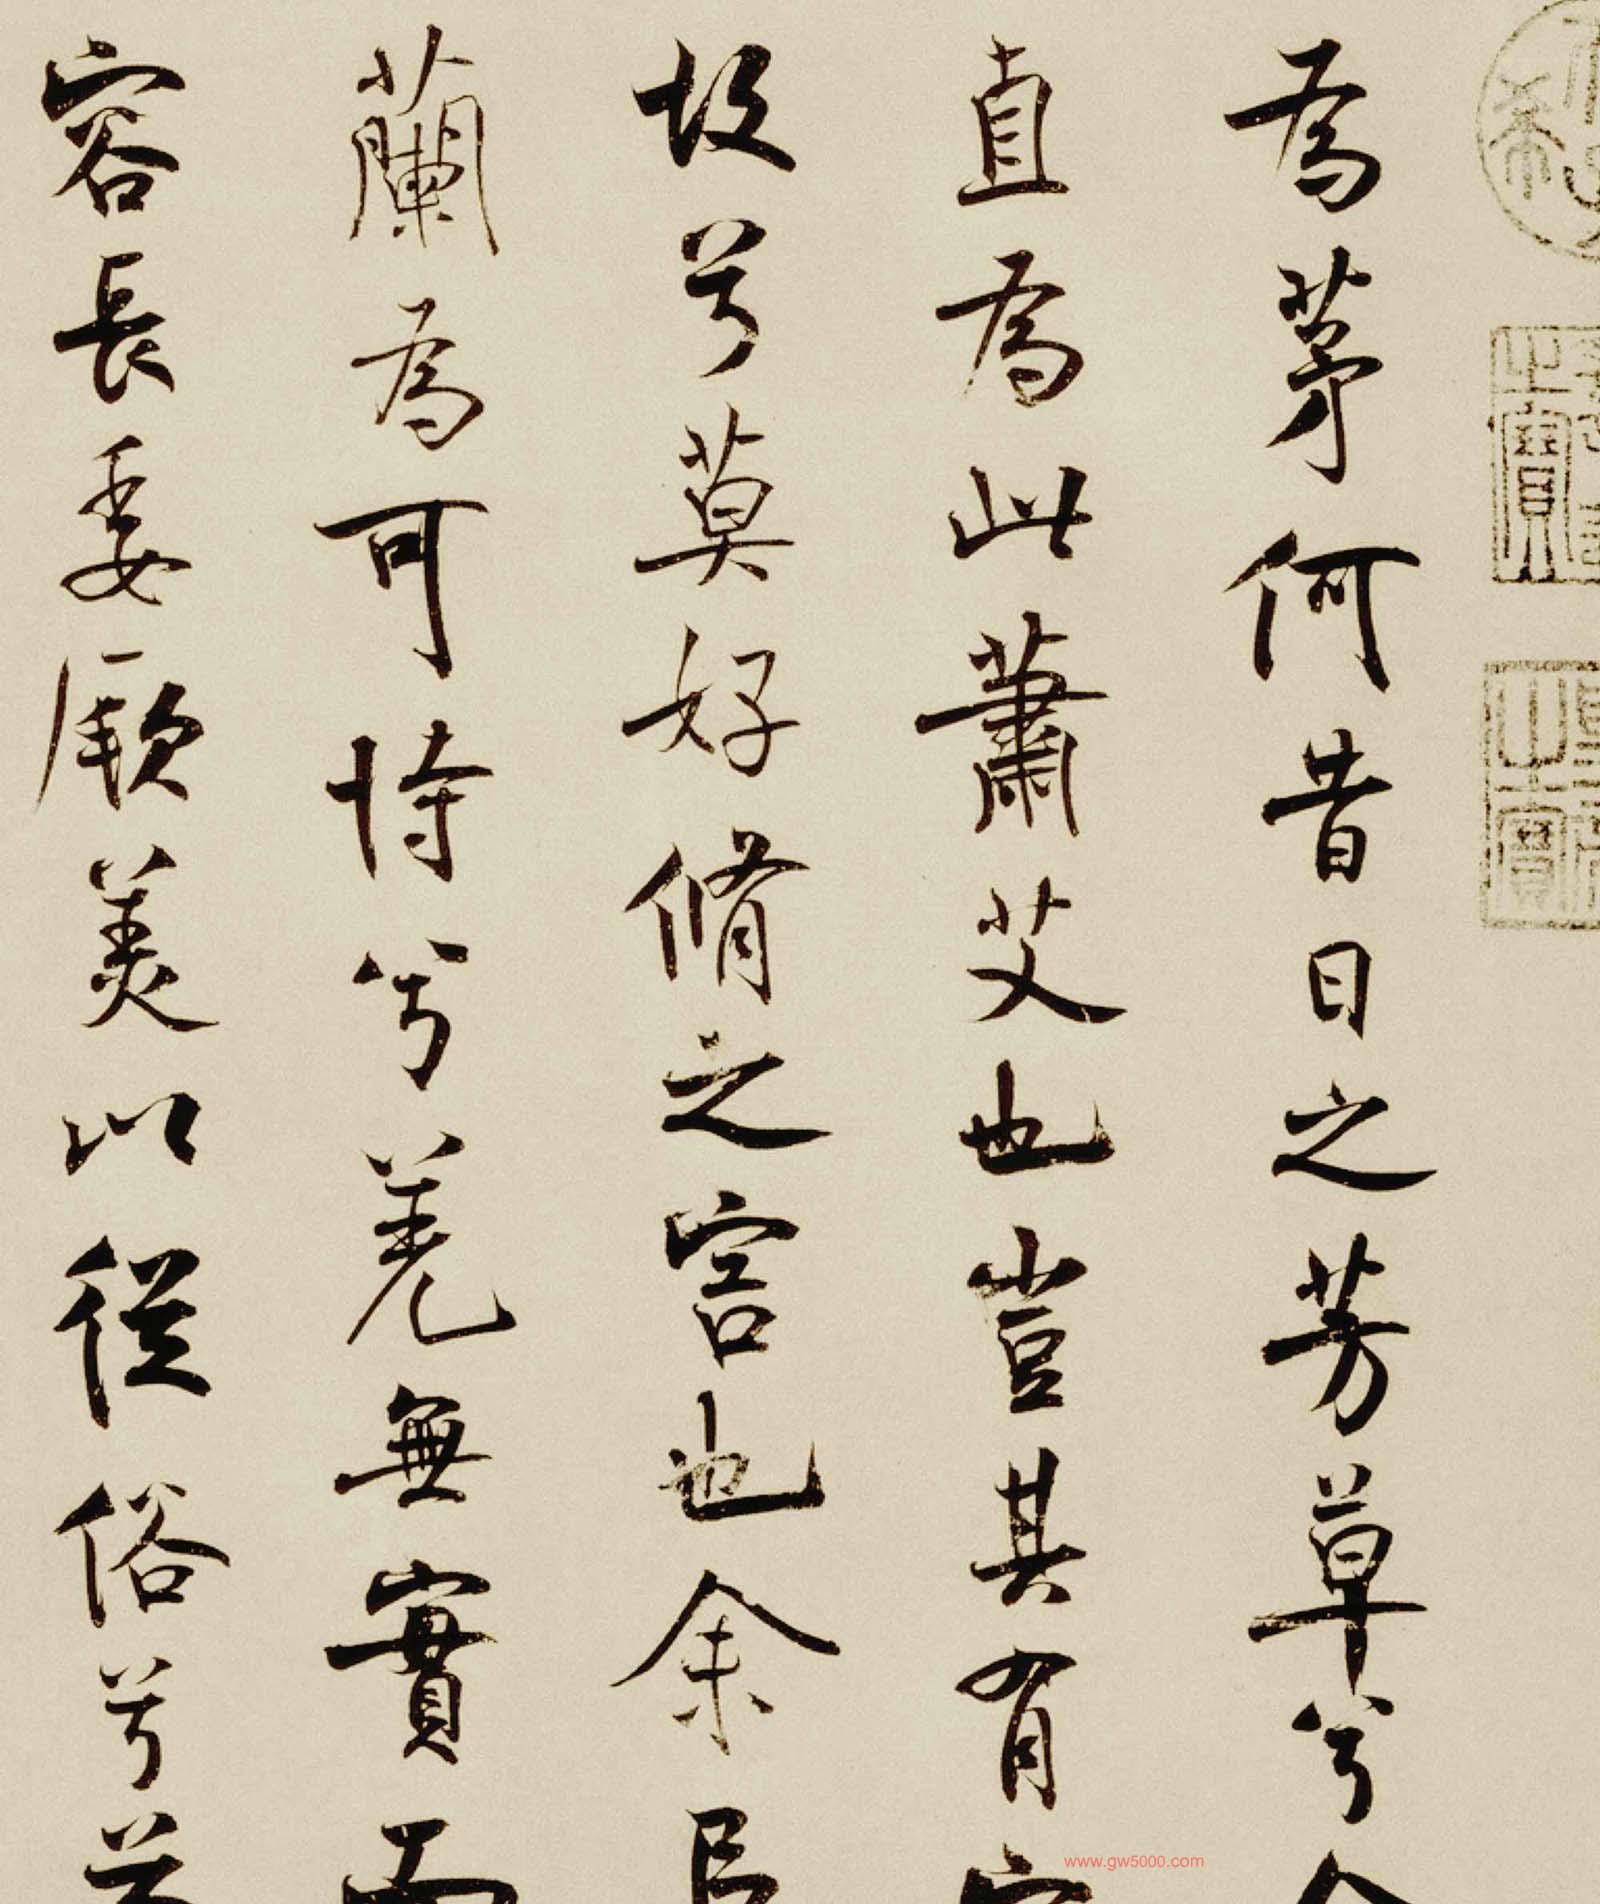 為茅何昔日之芳草兮
直為此蕭艾也豈其有
故兮莫好脩之害也余
蘭為可恃兮羌無實而
容長委厥美以從俗兮
www.gw5000.com